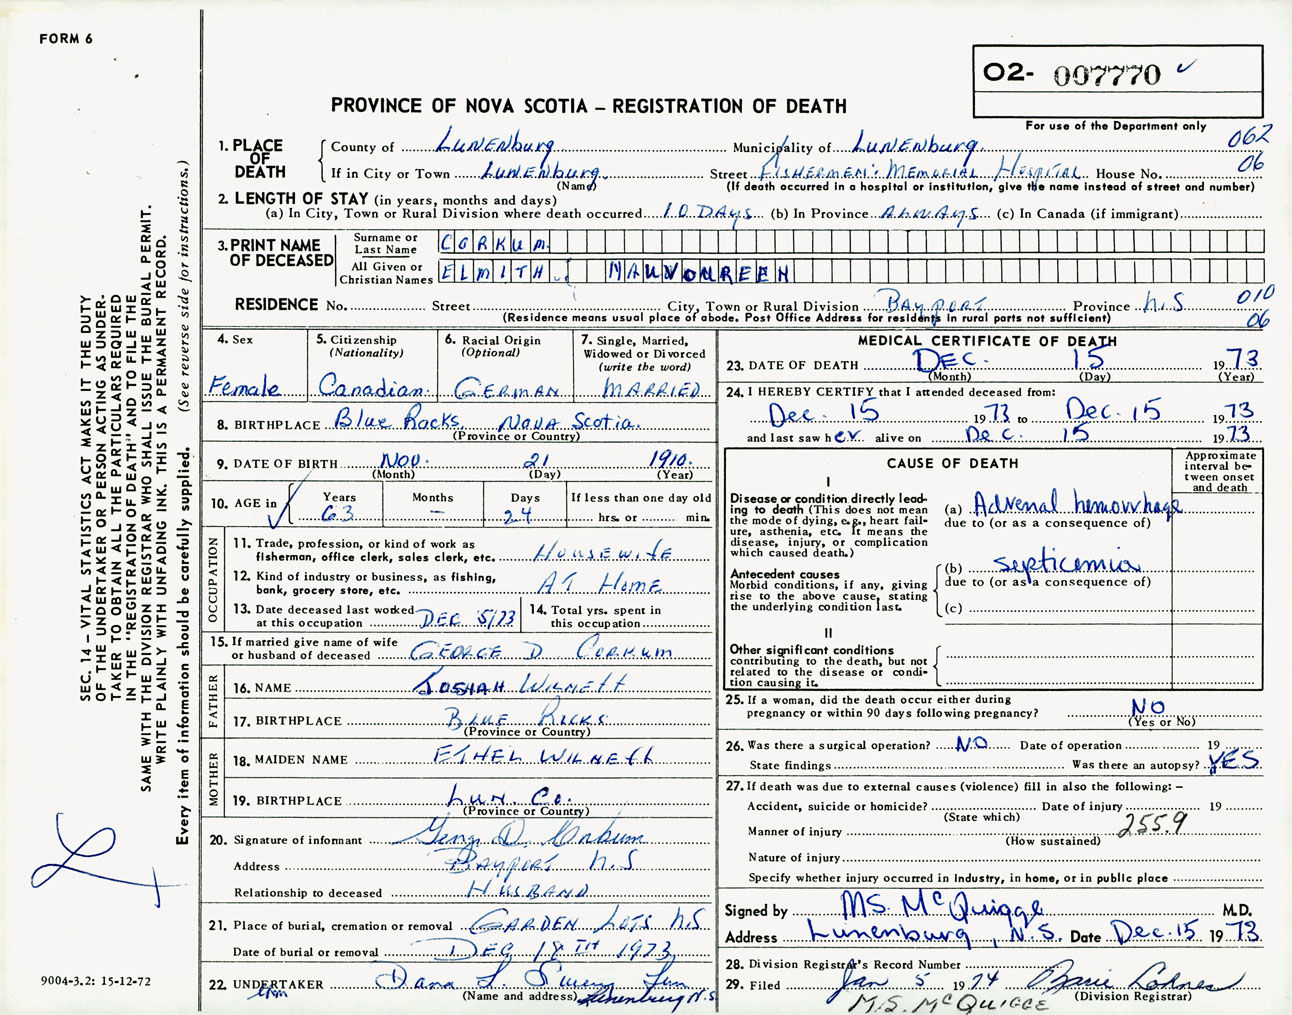 FORM 6
O2- 007770 ✓
PROVINCE OF NOVA SCOTIA – REGISTRATION OF DEATH
For use of the Department only
062
06
1. PLACE OF DEATH
County of LUNENburg Municipality of LUNENburg.
If in City or Town LUNENburg. Street FISHERMEN'S MEMORIAL HOSPITAL House No.
(Name) (If death occurred in a hospital or institution, give the name instead of street and number)
2. LENGTH OF STAY (in years, months and days)
(a) In City, Town or Rural Division where death occurred 10 DAYS (b) In Province ALWAYS (c) In Canada (if immigrant)
3. PRINT NAME OF DECEASED
Surname or Last Name CORKUM
All Given or Christian Names ELMITH
RESIDENCE No. Street City, Town or Rural Division BAYPORT Province N.S 010
(Residence means usual place of abode. Post Office Address for residents in rural parts not sufficient) 06
4. Sex Female
5. Citizenship (Nationality) Canadian.
6. Racial Origin (Optional) GERMAN
7. Single, Married, Widowed or Divorced (write the word) MARRIED
8. BIRTHPLACE Blue Rocks, NOVA Scotia.
(Province or Country)
9. DATE OF BIRTH NOV. 21 1910.
(Month) (Day) (Year)
10. AGE in Years 63 Months – Days 24 If less than one day old hrs. or min.
OCCUPATION
11. Trade, profession, or kind of work as fisherman, office clerk, sales clerk, etc. HOUSEWIFE
12. Kind of industry or business, as fishing, bank, grocery store, etc. AT HOME
13. Date deceased last worked at this occupation DEC 5/73
14. Total yrs. spent in this occupation
15. If married give name of wife or husband of deceased GEORGE D. CORKUM
FATHER
16. NAME JOSIAH
17. BIRTHPLACE BLUE ROCKS
(Province or Country)
MOTHER
18. MAIDEN NAME ETHEL
19. BIRTHPLACE LUN. CO.
(Province or Country)
20. Signature of informant
Address BAYPORT N.S
Relationship to deceased HUSBAND
21. Place of burial, cremation or removal GARDEN LOTS N.S
Date of burial or removal DEC 18TH 1973
22. UNDERTAKER Dana L.
(Name and address) Lunenburg N.S.
MEDICAL CERTIFICATE OF DEATH
23. DATE OF DEATH DEC. 15 1973
(Month) (Day) (Year)
24. I HEREBY CERTIFY that I attended deceased from:
Dec. 15 1973 to Dec. 15 1973
and last saw her alive on Dec. 15 1973
CAUSE OF DEATH
Approximate interval between onset and death
I
Disease or condition directly leading to death (This does not mean the mode of dying, e.g., heart failure, asthenia, etc. It means the disease, injury, or complication which caused death.)
(a) Adrenal hemorrhage
due to (or as a consequence of)
Antecedent causes
Morbid conditions, if any, giving rise to the above cause, stating the underlying condition last.
(b) septicemia
due to (or as a consequence of)
(c)
II
Other significant conditions contributing to the death, but not related to the disease or condition causing it.
25. If a woman, did the death occur either during pregnancy or within 90 days following pregnancy? NO
(Yes or No)
26. Was there a surgical operation? NO Date of operation 19
State findings Was there an autopsy? YES
27. If death was due to external causes (violence) fill in also the following: –
Accident, suicide or homicide? Date of injury 19
(State which)
Manner of injury 255.9
(How sustained)
Nature of injury
Specify whether injury occurred in industry, in home, or in public place
Signed by MS. McQuigge M.D.
Address Lunenburg, N.S. Date Dec. 15 1973
28. Division Registrar's Record Number
29. Filed Jan 5 1974
(Division Registrar)
M.S. McQUIGGE
SEC. 14 – VITAL STATISTICS ACT MAKES IT THE DUTY
OF THE UNDERTAKER OR PERSON ACTING AS UNDERTAKER
TO OBTAIN ALL THE PARTICULARS REQUIRED
IN THE "REGISTRATION OF DEATH" AND TO FILE THE
SAME WITH THE DIVISION REGISTRAR WHO SHALL ISSUE THE BURIAL PERMIT.
WRITE PLAINLY WITH UNFADING INK. THIS IS A PERMANENT RECORD.
Every item of information should be carefully supplied. (See reverse side for instructions.)
9004-3.2: 15-12-72